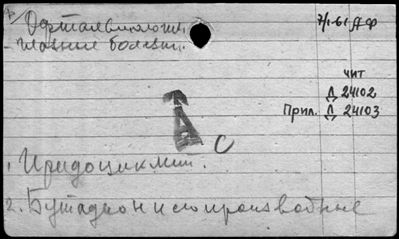 Офтальмология.
7/I-61 ДФ
- Глазные болезни.
чит
Д 24102
Прил. Д 24103
С
1. Иридоциклит.
2. Бутадион и его производные